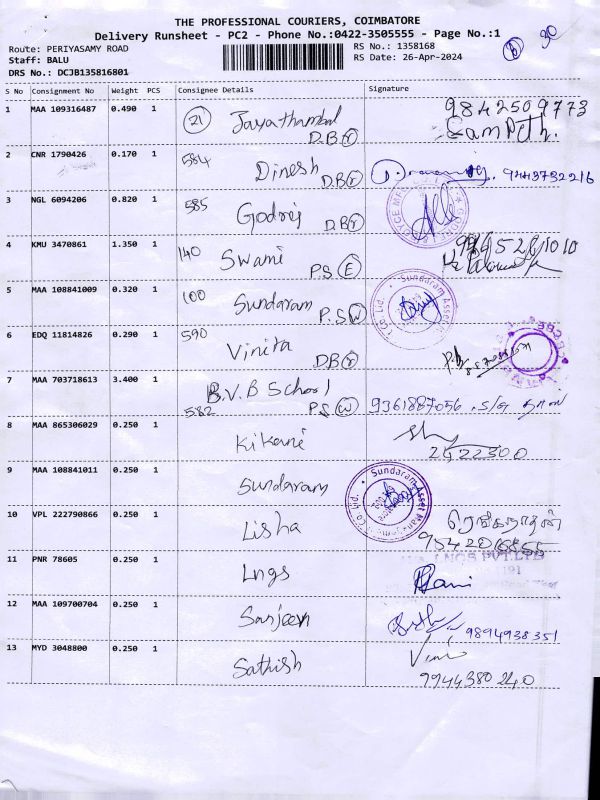 THE PROFESSIONAL COURIERS, COIMBATORE
Delivery Runsheet - PC2 - Phone No.:0422-3505555 - Page No.:1
Route: PERIYASAMY ROAD
Staff: BALU
DRS No.: DCJB135816801
RS No.: 1358168
RS Date: 26-Apr-2024
S No Consignment No Weight PCS Consignee Details Signature
1 MAA 109316487 0.490 1 21 Jayathambal 9842509773
D.B Y Sampath.
2 CNR 1790426 0.170 1 584 Dinesh
D.B Y 9443732216
3 NGL 6094206 0.820 1 585 Godrej
D.B Y
4 KMU 3470861 1.350 1 140 Swami
P.S E
5 MAA 108841009 0.320 1 100 Sundaram Sundaram Asset
P.S W
6 EDQ 11814826 0.290 1 590 Vinita
D.B Y
7 MAA 703718613 3.400 1 B.V.B School
582 P.S W 9361887056
8 MAA 865306029 0.250 1 Kikani
2422300
9 MAA 108841011 0.250 1 Sundaram Sundaram Asset Management Co Ltd.
10 VPL 222790866 0.250 1 Lisha ரெங்கநாதன்
9542016855
11 PNR 78605 0.250 1 Lngs
LNGS PVT LTD
12 MAA 109700704 0.250 1 Sanjeev
9894938351
13 MYD 3048800 0.250 1 Sathish
9944380240